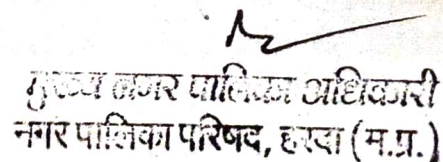 मुख्य नगर पालिका अधिकारी
नगर पालिका परिषद, हरदा (म.प्र.)